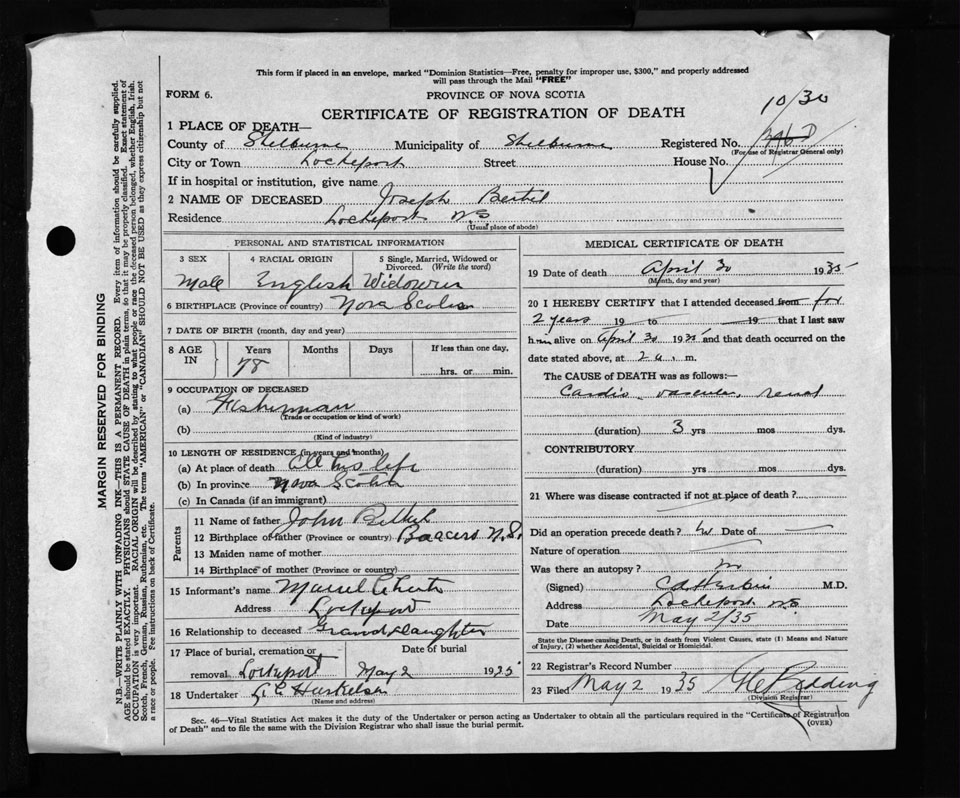 This form if placed in an envelope, marked "Dominion Statistics—Free, penalty for improper use, $300," and properly addressed
will pass through the Mail "FREE"
FORM 6.
PROVINCE OF NOVA SCOTIA
CERTIFICATE OF REGISTRATION OF DEATH
10/30
1 PLACE OF DEATH—
County of Shelburne Municipality of Shelburne Registered No.
(For use of Registrar General only)
City or Town Lockeport Street House No.
If in hospital or institution, give name
2 NAME OF DECEASED Joseph
Residence Lockeport N.S
(Usual place of abode)
PERSONAL AND STATISTICAL INFORMATION
3 SEX 4 RACIAL ORIGIN 5 Single, Married, Widowed or
Divorced. (Write the word)
Male English Widower
6 BIRTHPLACE (Province or country) Nova Scotia
7 DATE OF BIRTH (month, day and year)
8 AGE IN Years Months Days If less than one day,
78 hrs. or min.
9 OCCUPATION OF DECEASED
(a) Fisherman
(Trade or occupation or kind of work)
(b)
(Kind of industry)
10 LENGTH OF RESIDENCE (in years and months)
(a) At place of death All his life
(b) In province Nova Scotia
(c) In Canada (if an immigrant)
Parents
11 Name of father John
12 Birthplace of father (Province or country) N.S.
13 Maiden name of mother
14 Birthplace of mother (Province or country)
15 Informant's name
Address Lockeport
16 Relationship to deceased Granddaughter
17 Place of burial, cremation or Date of burial
removal Lockeport May 2 1935
18 Undertaker
(Name and address)
MEDICAL CERTIFICATE OF DEATH
19 Date of death April 30 1935
(Month, day and year)
20 I HEREBY CERTIFY that I attended deceased from for
2 years 19 to 19 that I last saw
him alive on April 30 1935 and that death occurred on the
date stated above, at 2 a. m.
The CAUSE OF DEATH was as follows:—
Cardio vascular renal
(duration) 3 yrs mos dys.
CONTRIBUTORY
(duration) yrs mos dys.
21 Where was disease contracted if not at place of death?
Did an operation precede death? Date of
Nature of operation
Was there an autopsy?
(Signed) M.D.
Address Lockeport N.S.
Date May 2/35
State the Disease causing Death, or in death from Violent Causes, state (1) Means and Nature
of Injury, (2) whether Accidental, Suicidal or Homicidal.
22 Registrar's Record Number
23 Filed May 2 1935
(Division Registrar)
Sec. 46—Vital Statistics Act makes it the duty of the Undertaker or person acting as Undertaker to obtain all the particulars required in the "Certificate of Registration
of Death" and to file the same with the Division Registrar who shall issue the burial permit. (OVER)
MARGIN RESERVED FOR BINDING
N.B.—WRITE PLAINLY WITH UNFADING INK—THIS IS A PERMANENT RECORD. Every item of information should be carefully supplied.
AGE should be stated EXACTLY. PHYSICIANS should STATE CAUSE OF DEATH in plain terms, so that it may be properly classified. Exact statement of
OCCUPATION is very important. RACIAL ORIGIN will be described by stating to what people or race the deceased person belonged, whether English, Irish,
Scotch, French, German, Russian, Ruthenian, etc. The terms "AMERICAN" or "CANADIAN" SHOULD NOT BE USED as they express citizenship but not
a race or people. See instructions on back of Certificate.